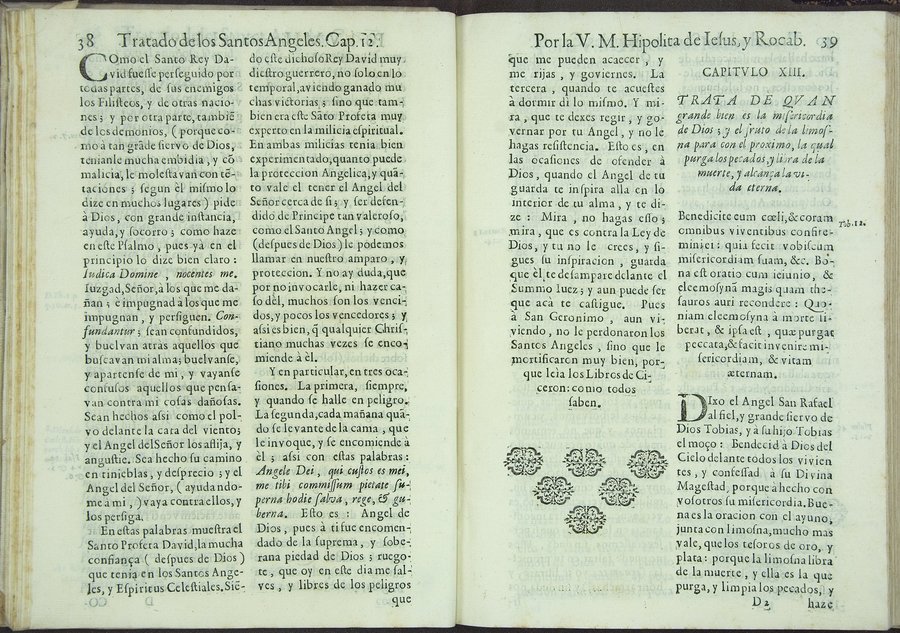 38 Tratado de los Santos Angeles. Cap. 12.
COmo el Santo Rey Da-
vid fuesse perseguido por
todas partes, de sus enemigos
los Filisteos, y de otras nacio-
nes; y por otra parte, tambiē
de los demonios, (porque co-
mo à tan grāde siervo de Dios,
tenianle mucha embidia, y cō
malicia, le molestavan con tē-
taciones; segun èl mismo lo
dize en muchos lugares) pide
à Dios, con grande instancia,
ayuda, y socorro; como haze
en este Psalmo, pues yà en el
principio lo dize bien claro:
Iudica Domine, nocentes me.
Iuzgad, Señor, à los que me da-
ñan; è impugnad à los que me
impugnan, y persiguen. Con-
fundantur; sean confundidos,
y buelvan atràs aquellos que
buscavan mi alma; buelvanse,
y apartense de mi, y vayanse
confusos aquellos que pensa-
van contra mi cosas dañosas.
Sean hechos assi como el pol-
vo delante la cara del viento;
y el Angel del Señor los aflija, y
angustie. Sea hecho su camino
en tinieblas, y desprecio; y el
Angel del Señor, (ayudando-
me à mi,) vaya contra ellos, y
los persiga.
En estas palabras muestra el
Santo Profeta David, la mucha
confiança (despues de Dios)
que tenia en los Santos Ange-
les, y Espiritus Celestiales. Siē-
do este dichoso Rey David muy
diestro guerrero, no solo en lo
temporal, aviendo ganado mu
chas victorias; sino que tam-
bien era este Sāto Profeta muy
experto en la milicia espiritual.
En ambas milicias tenia bien
experimentado, quanto puede
la proteccion Angelica, y quā-
to vale el tener el Angel del
Señor cerca de si; y ser defen-
dido de Principe tan valeroso,
como el Santo Angel; y como
(despues de Dios) le podemos
llamar en nuestro amparo, y
proteccion. Y no ay duda, que
por no invocarle, ni hazer ca-
so dèl, muchos son los venci-
dos, y pocos los vencedores; y
assi es bien, q̄ qualquier Chris-
tiano muchas vezes se enco-
miende à èl.
Y en particular, en tres oca-
siones. La primera, siempre,
y quando se halle en peligro.
La segunda, cada mañana quā-
do se levante de la cama, que
le invoque, y se encomiende à
èl; assi con estas palabras:
Angele Dei, qui custos es mei,
me tibi commissum pietate su-
perna hodie salva, rege, & gu-
berna. Esto es: Angel de
Dios, pues à ti fue encomen-
dado de la suprema, y sobe-
rana piedad de Dios; ruego-
te, que oy en este dia me sal-
ves, y libres de los peligros
que
Por la V. M. Hipolita de Iesus, y Rocàb. 39
que me pueden acaecer, y
me rijas, y govierrnes. La
tercera, quando te acuestes
à dormir di lo mismo. Y mi-
ra, que te dexes regir, y go-
vernar por tu Angel, y no le
hagas resistencia. Esto es, en
las ocasiones de ofender à
Dios, quando el Angel de tu
guarda te inspira allà en lo
interior de tu alma, y te di-
ze: Mira, no hagas esso;
mira, que es contra la Ley de
Dios, y tu no le crees, y si-
gues su inspiracion, guarda
que èl te desampare delante el
Summo Iuez; y aun puede ser
que acà te castigue. Pues
à San Geronimo, aun vi-
viendo, no le perdonaron los
Santos Angeles, sino que le
mortificaron muy bien, por-
que leìa los Libros de Ci-
ceron: como todos
saben.
CAPITVLO XIII.
TRATA DE QVAN
grande bien es la misericordia
de Dios; y el fruto de la limos-
na para con el proximo, la qual
purga los pecados, y libra de la
muerte, y alcança la vi-
da eterna.
Benedicite eum cœli, & coram
omnibus viventibus confite-
mini ei: quia fecit vobiscum
misericordiam suam, &c. Bo-
na est oratio cum ieiunio, &
eleemosyna magis quam the-
sauros auri recondere: Quo-
niam eleemosyna à morte li-
berat, & ipsa est, quæ purgat
peccata, & facit invenire mi-
sericordiam, & vitam
æternam.
Tob. 12.
DIxo el Angel San Rafael
al fiel, y grande siervo de
Dios Tobias, y à su hijo Tobias
el moço: Bendecid à Dios del
Cielo delante todos los vivien
tes, y confessad à su Divina
Magestad, porque à hecho con
vosotros su misericordia. Bue-
na es la oracion con el ayuno,
junta con limosna, mucho mas
vale, que los tesoros de oro, y
plata: porque la limosna libra
de la muerte, y ella es la que
purga, y limpia los pecados, y
D 2 haze